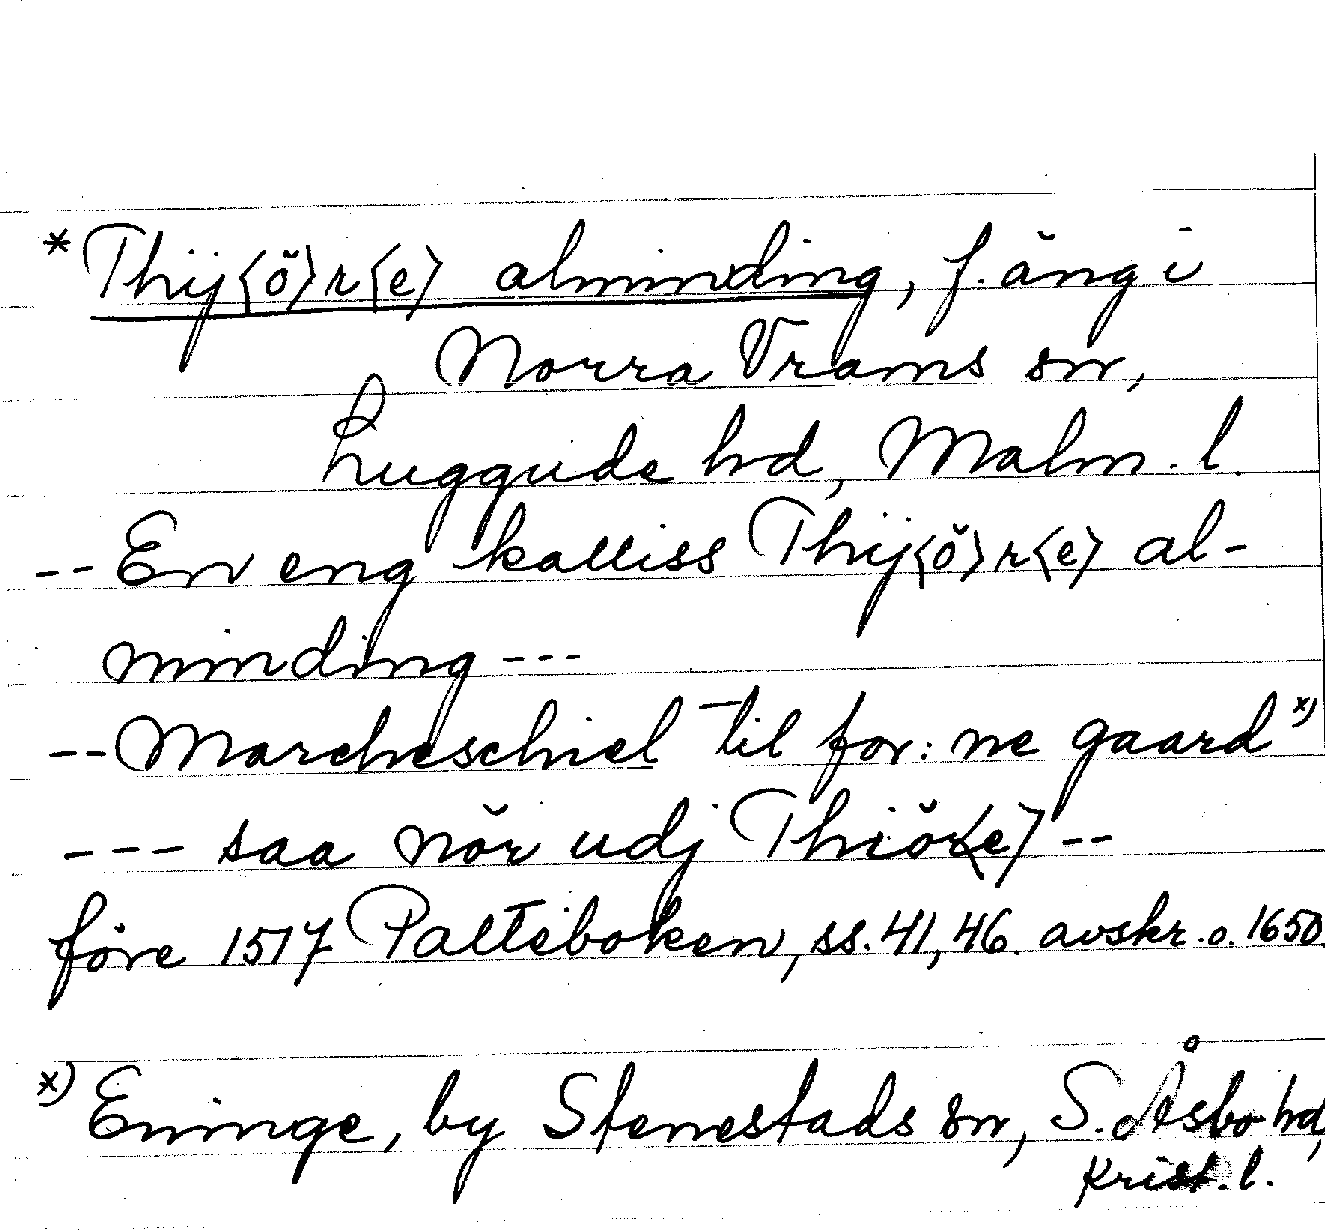 *Thij<ö>r<e> alminding, f. äng i
Norra Vrams sn,
Luggude hd, Malm. l.
-- En eng kalliss Thij<ö>r<e> al-
minding ---
-- Marcheschiel til for: ne gaard x)
--- saa nör udj Thiör<e> --
före 1517 Palteboken, ss. 41, 46. avskr. o. 1650.
x) Eninge, by Stenestads sn, S. Åsbo hd,
Krist. l.